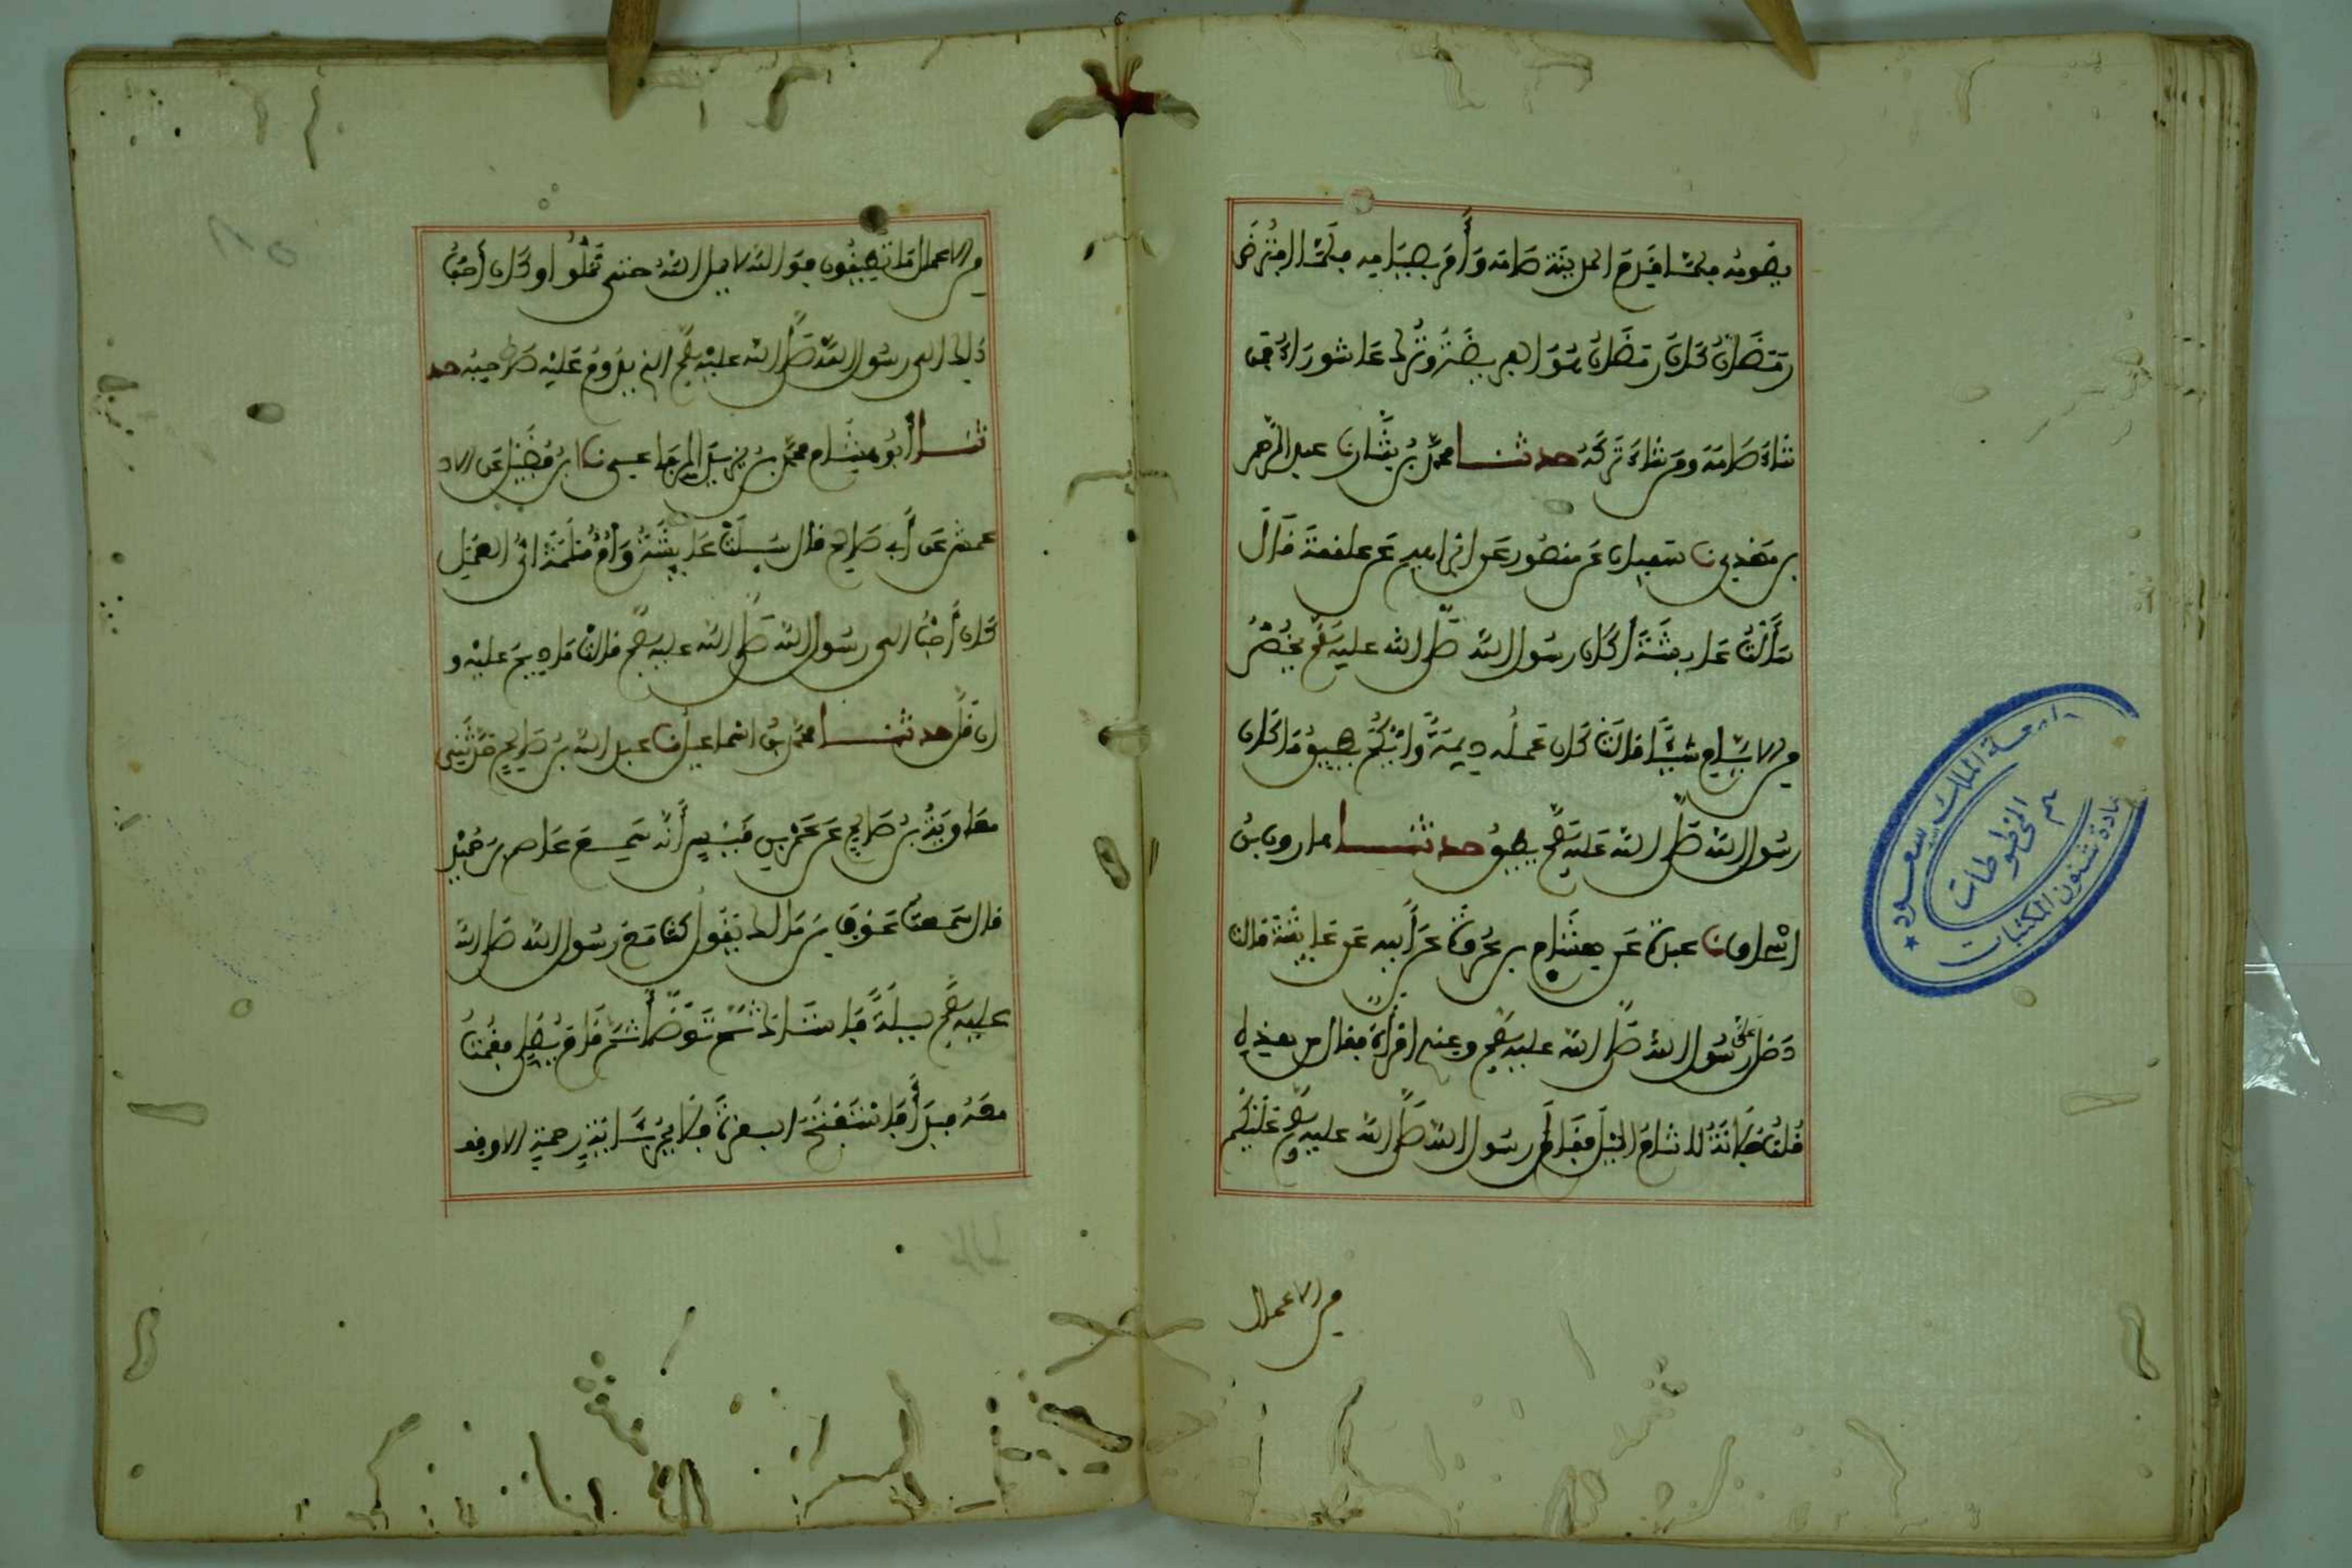 يصومه فلما قدم المدينة صامه وأمر بصيامه فلما افترض
رمضان كان رمضان هو الفريضة وترك عاشوراء فمن
شاء صامه ومن شاء تركه حدثنا محمد بن بشار نا عبد الرحمن
بن مهدي نا سفيان عن منصور عن ابراهيم عن علقمة قال
سألت عايشة أكان رسول الله صلى الله عليه وسلم يخص
من الايام شيئا قالت كان عمله ديمة وايكم يطيق ما كان
رسول الله صلى الله عليه وسلم يطيق حدثنا هارون بن
اسحاق نا عبدة عن هشام بن عروة عن أبيه عن عايشة قالت
دخل على رسول الله صلى الله عليه وسلم وعندي امرأة فقال من هذه
قلت فلانة لا تنام الليل فقال رسول الله صلى الله عليه وسلم عليكم
من الاعمال
من الاعمال ما تطيقون فوالله لا يمل الله حتى تملوا وكان أحب
ذلك الى رسول الله صلى الله عليه وسلم الذي يدوم عليه صاحبه حد
ثنا أبو هشام محمد بن يزيد الرفاعي نا ابن فضيل عن الا
عمش عن أبي صالح قال سيلت عايشة وأم سلمة اي العمل
كان أحب الى رسول الله صلى الله عليه وسلم قالتا ما ديم عليه و
ان قل حدثنا محمد بن اسماعيل نا عبد الله بن صالح حدثني
معاوية بن صالح عن عمرو بن قيس أنه سمع عاصم بن حميد
قال سمعت عوف بن مالك يقول كنت مع رسول الله صلى الله
عليه وسلم ليلة فاستاك ثم توضأ ثم قام يصلي فقمت
معه فبدأ فاستفتح البقرة فلا يمر بآية رحمة الا وقف
جامعة الملك سعود
قسم المخطوطات
عمادة شئون المكتبات